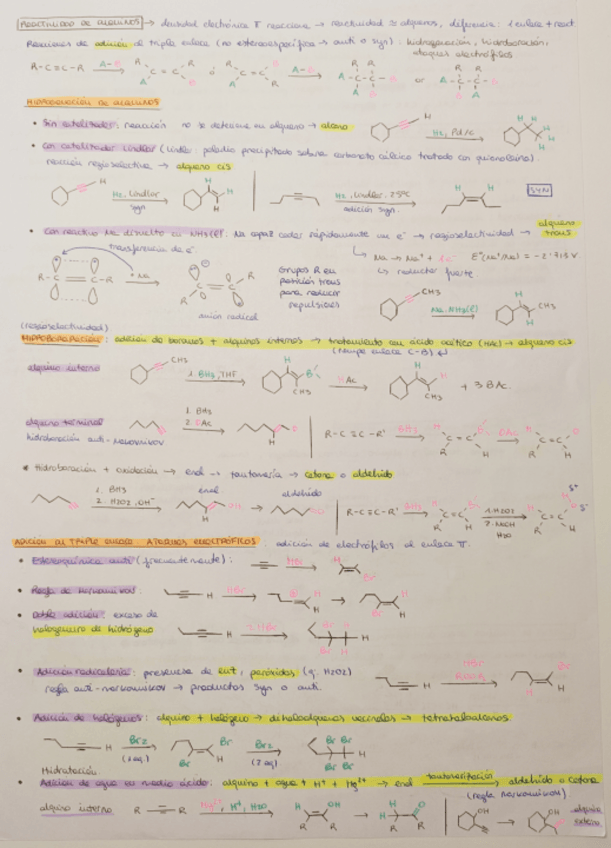 REACTIVIDAD DE ALQUINOS → densidad electrónica π reacciona → reactividad ≈ alquenos, diferencia: 1 enlace + react.
Reacciones de adición al triple enlace (no estereoespecífica → anti o syn): hidrogenación, hidroboración,
ataques electrófilos
R-C≡C-R A-B R R C=C A B ó R B C=C A R A-B R R A-C-C-B A B or R R A-C-C-B
HIDROGENACIÓN DE ALQUINOS
• Sin catalizador: reacción no se detiene en alqueno → alcano H H2, Pd/C H H H
• Con catalizador Lindlar (Lindlar: paladio precipitado sobre carbonato cálcico tratado con quinolina)
reacción regioselectiva → alqueno cis
H H2, Lindlar syn H H H H2, Lindlar, 25ºC adición syn. H H SYN
• Con reactivo Na disuelto en NH3(l). Na capaz ceder rápidamente un e⁻ → regioselectividad → alqueno trans
transferencia de e⁻
Na → Na⁺ + 1e⁻ Eº(Na⁺/Na) = -2'713 V
↳ reductor fuerte
R-C=C-R • Na R C=C R
anión radical
Grupos R en
posición trans
para reducir
repulsiones
CH3 Na, NH3(l) H CH3 H
(regioselectividad)
HIDROBORACIÓN: adición de boranos + alquinos internos → tratamiento con ácido acético (HAc) → alqueno cis
(rompe enlace C-B)
alquino interno CH3 1. BH3, THF H B CH3 HAc H H CH3 + 3 BAc.
alquino terminal
hidroboración anti-Markovnikov
1. BH3
2. OAc
H R-C≡C-R' BH3 H C=C R H OAc H C=C R H
• Hidroboración + oxidación → enol → tautomería → cetona o aldehído
1. BH3
2. H2O2, OH⁻
enol OH H aldehído
R-C≡C-R' BH3 H C=C R H 1. H2O2 2. NaOH H2O H C=C R H
ADICIÓN AL TRIPLE ENLACE. ATAQUES ELECTRÓFILOS: adición de electrófilos al enlace π.
• Estereoquímica anti (frecuentemente): HBr H Br
• Regla de Markovnikov: H HBr H H Br H
• Doble adición: exceso de
halogenuro de hidrógeno
H 2 HBr Br H H Br H
• Adición radicalaria: presencia de luz, peróxidos (ej: H2O2)
regla anti-Markovnikov → productos syn o anti.
H HBr ROOR Br H H
• Adición de halógenos: alquino + halógeno → dihaloalquenos vecinales → tetrahaloalcanos
H Br2 (1 eq) Br H Br Br2 (2 eq) Br Br H Br Br
Hidratación
• Adición de agua en medio ácido: alquino + agua + H⁺ + Hg²⁺ → enol tautomerización aldehído o cetona
(regla Markovnikov)
alquino interno R R Hg²⁺, H⁺, H2O H OH R R → H H O R R OH → OH O alquino externo